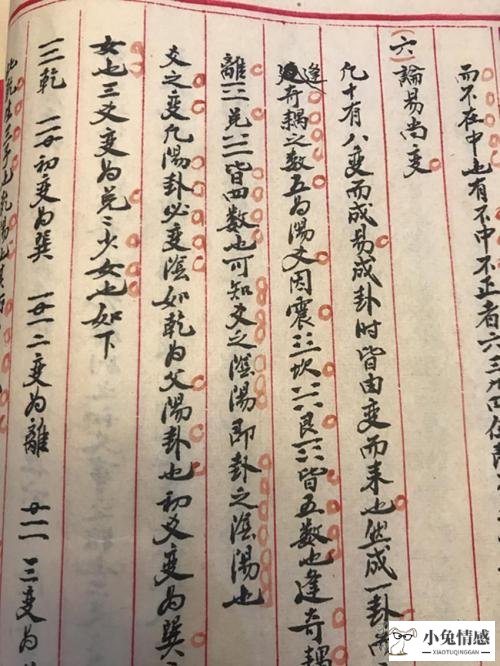 而不在中也有不中不正者六三九四位
(六)論易尚变
凡十有八变而成易成卦时皆由变而来也然成一卦
逢奇耦之数五为陽爻因震☳坎☵艮☶皆五数也逢奇耦
離☲兑☱皆四数也可知爻之陰陽即卦之陰陽也
爻之变凡陽卦必变陰如乾为父陽卦也初爻变为巽
女也三爻变为兑〻少女也如下
☰乾 ☴初变为巽 ☲二变为離 ☱三变为
小兔情感
XIAOTUQINGGAN